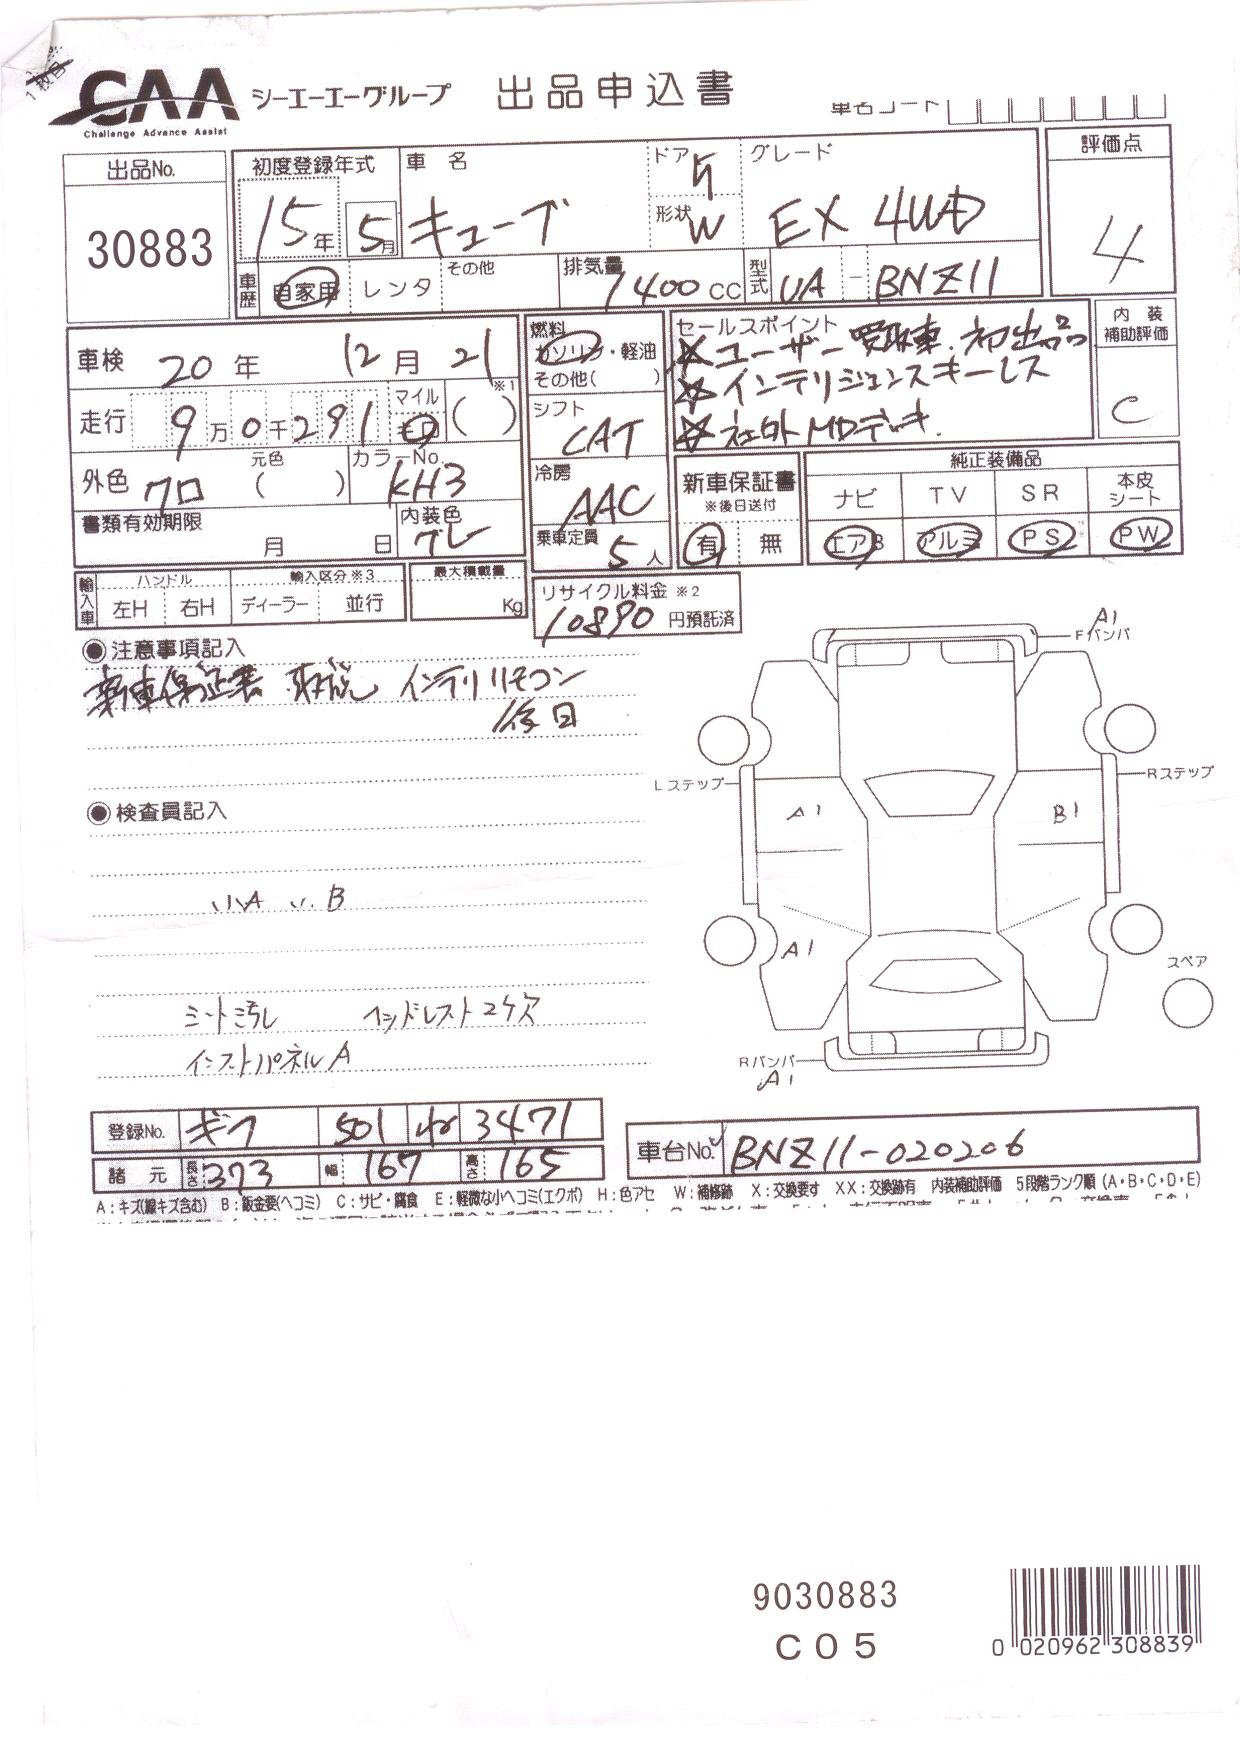 1枚目
CAA シーエーエーグループ 出品申込書 車名コード
Challenge Advance Assist
出品No. 30883
初度登録年式 15年 5月
車名 キューブ
ドア 5
形状 W
グレード EX 4WD
評価点 4
車歴 自家用 レンタ その他
排気量 1400 CC
型式 UA - BNZ11
車検 20年 12月 21
走行 9万0千291 マイル キロ ( ) ※1
外色 クロ 元色 ( ) カラーNo. KH3
書類有効期限 月 日
内装色 グレー
燃料 ガソリン・軽油
その他( )
シフト CAT
冷房 AAC
乗車定員 5人
セールスポイント ユーザー買取車.初出品
インテリジェンスキーレス
社外MDデッキ.
内装補助評価 C
新車保証書
※後日送付
有 無
純正装備品
ナビ TV SR 本皮シート
エアB アルミ PS PW
輸入車 ハンドル 左H 右H
輸入区分※3 ディーラー 並行
最大積載量 Kg
リサイクル料金 ※2
10890 円預託済
◉注意事項記入
新車保証書 取説 インテリリモコン
後日
◉検査員記入
小A 小B
シートミ汚レ ヘッドレスト2ケ欠
インストパネルA
A1
Fバンパ
Lステップ
Rステップ
A1
B1
A1
スペア
Rバンパ
A1
登録No. ギフ 501 ね 3471
諸元 長さ 373 幅 167 高さ 165
車台No. BNZ11-020206
A:キズ(線キズ含む) B:鈑金要(ヘコミ) C:サビ・腐食 E:軽微な小ヘコミ(エクボ) H:色アセ W:補修跡 X:交換要す XX:交換跡有 内装補助評価 5段階ランク順(A・B・C・D・E)
9030883
C05
0 020962 308839